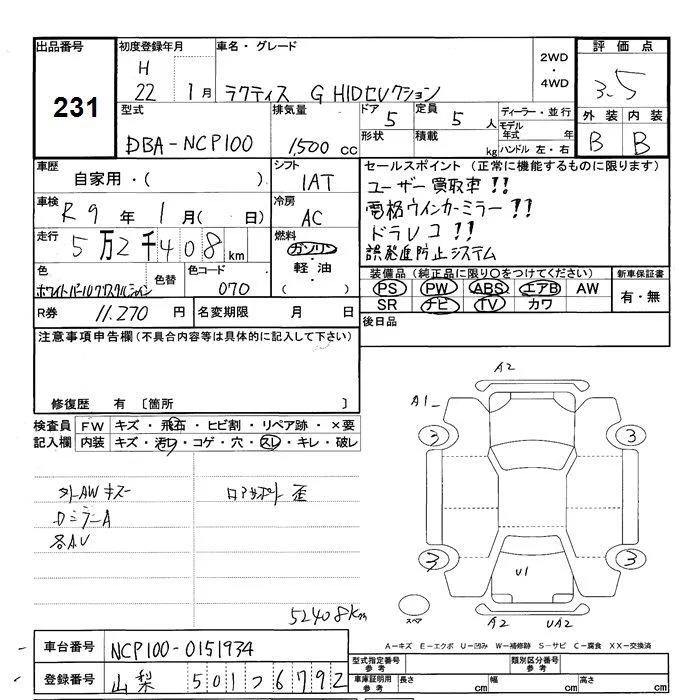 出品番号
231
初度登録年月
H
22 1月
車名・グレード
ラクティス G HIDセレクション
2WD
・
4WD
評価点
3.5
外装 内装
B B
型式
DBA-NCP100
排気量
1500 cc
ドア
5
形状
定員
5 人
積載
kg
ディーラー・並行
モデル年式 年
ハンドル 左・右
車歴
自家用・( ).
シフト
IAT
車検
R 9 年 1 月( 日)
冷房
AC
走行
5万2千408km
燃料
ガソリン
・
軽油
・
( )
色
ホワイトパールクリスタルシャイン
色替
色コード
070
R券 11.270 円
名変期限 月 日
セールスポイント (正常に機能するものに限ります)
ユーザー買取車!!
電格ウインカーミラー!!
ドラレコ!!
誤発進防止システム
装備品(純正品に限り○をつけてください)
PS PW ABS エアB AW
SR ナビ TV カワ
新車保証書
有・無
後日品
注意事項申告欄(不具合内容等は具体的に記入して下さい)
修復歴 有 〔箇所 〕
検査員
記入欄
FW キズ・飛石・ヒビ割・リペア跡・×要
内装 キズ・汚レ・コゲ・穴・スレ・キレ・破レ
外AWキズ
DミラーA
各AU
ロアサポート歪
52408km
A2
A1
3 3
3 3
U1
スペア
A2 UA2
A-キズ E-エクボ U-凹み W-補修跡 S-サビ C-腐食 XX-交換済
車台番号 NCP100-0151934
登録番号 山梨 501 ㇷ 6792
型式指定番号
参考
類別区分番号
参考
車庫証明用
参考
長さ cm 幅 cm 高さ cm